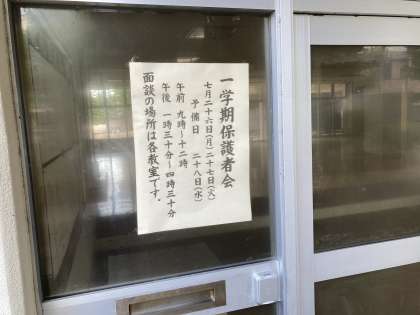 一学期保護者会
七月二十六日(月)二十七日(火)
予備日 二十八日(水)
午前 九時〜十二時
午後 一時三十分〜四時三十分
面談の場所は各教室です．